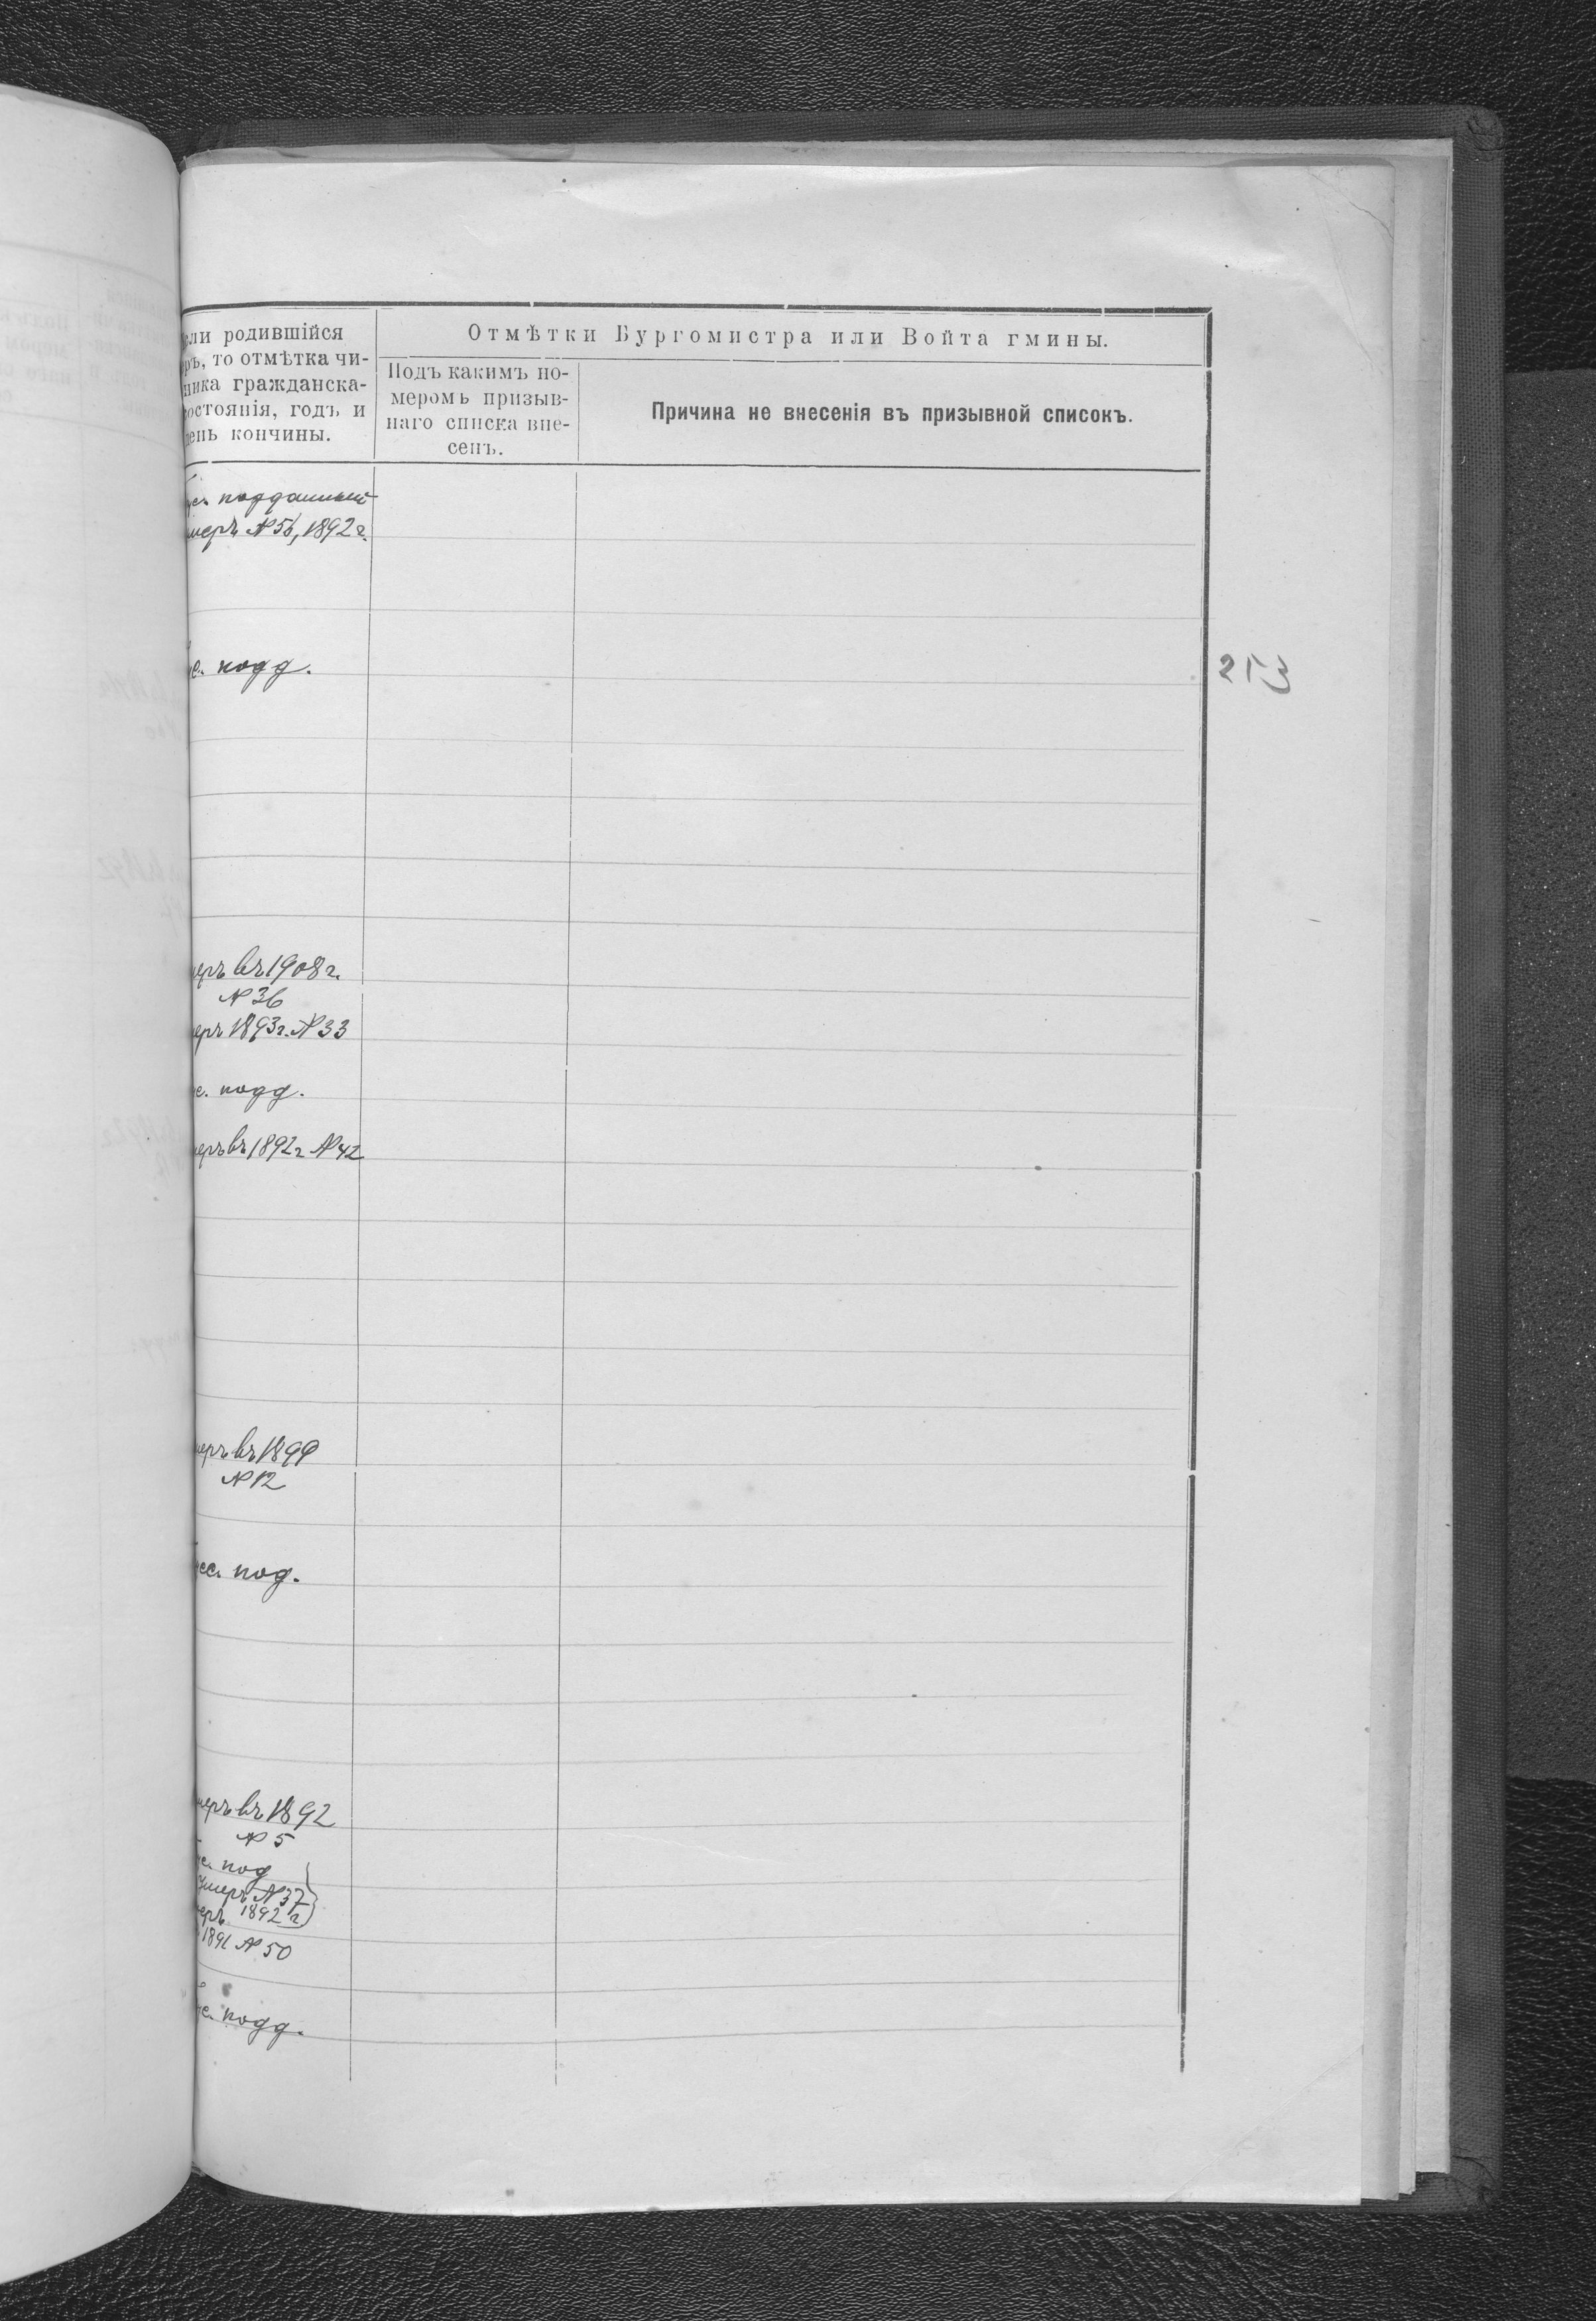 ели родившійся
ръ, то отмѣтка чи-
ника гражданска-
состоянія, годъ и
день кончины.
Отмѣтки Бургомистра или Войта гмины.
Подъ какимъ но-
меромъ призыв-
наго списка вне-
сенъ.
Причина не внесенія въ призывной списокъ.
мерь №56, 1892 г.
с. подд.
253
мерь въ 1908 г.
№ 36
мерь 1893 г. № 33
с. подд.
мерь въ 1892 г № 42
мерь въ 1899
№ 12
сс. под.
мерь въ 1892
№ 5
с. под
Умеръ № 37
1892 г
1891 № 50
с. подд.